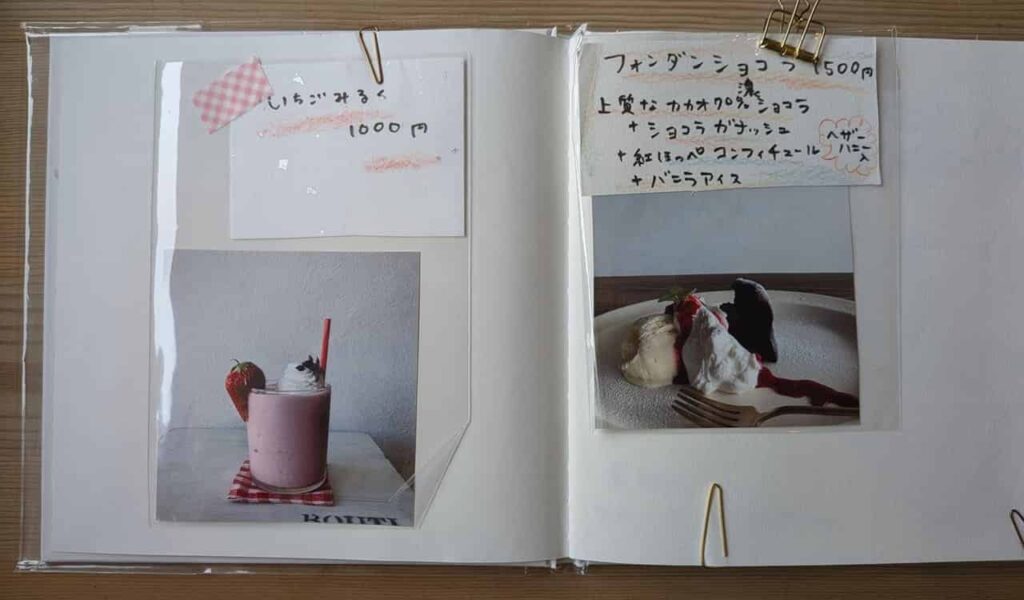 いちごみるく
1000円
フォンダンショコラ 1500円
上質なカカオ70%濃ショコラ
+ショコラガナッシュ
+紅ほっぺコンフィチュール
+バニラアイス
ヘザー
ハニー
入